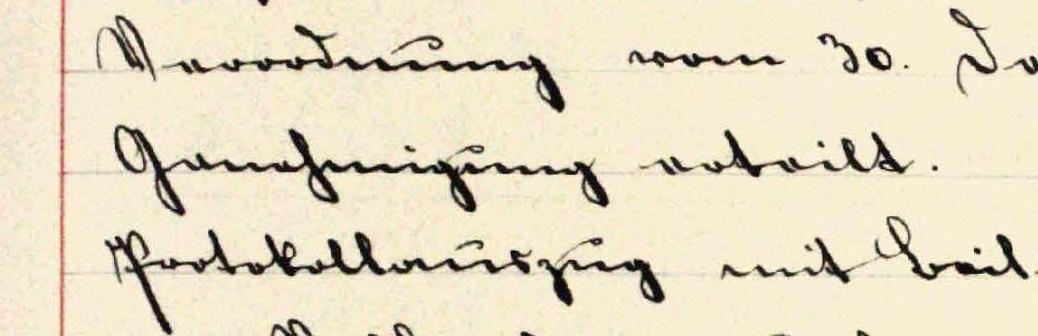 Verordnung vom 30.
Genehmigung erteilt.
Protokollauszug mit Beil-